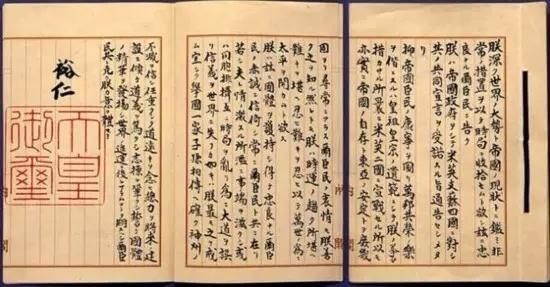 朕深ク世界ノ大勢ト帝國ノ現状トニ鑑ミ非
常ノ措置ヲ以テ時局ヲ収拾セムト欲シ茲ニ忠
良ナル爾臣民ニ告ク
朕ハ帝國政府ヲシテ米英支蘇四國ニ對シ
其ノ共同宣言ヲ受諾スル旨通告セシメタ
リ
抑々帝國臣民ノ康寧ヲ圖リ萬邦共榮ノ樂
ヲ偕ニスルハ皇祖皇宗ノ遺範ニシテ朕ノ拳々
措カサル所曩ニ米英二國ニ宣戰セル所以モ
亦實ニ帝國ノ自存ト東亞ノ安定トヲ庶幾
固ヨリ尋常ニアラス爾臣民ノ衷情モ朕善
ク之ヲ知ル然レトモ朕ハ時運ノ趨ク所堪ヘ
難キヲ堪ヘ忍ヒ難キヲ忍ヒ以テ萬世ノ爲ニ
太平ヲ開カムト欲ス
朕ハ茲ニ國體ヲ護持シ得テ忠良ナル爾臣
民ノ赤誠ニ信倚シ常ニ爾臣民ト共ニ在リ
若シ夫レ情ノ激スル所濫ニ事端ヲ滋クシ或
ハ同胞排擠互ニ時局ヲ亂リ爲ニ大道ヲ誤
リ信義ヲ世界ニ失フカ如キハ朕最モ之ヲ戒
ム宜シク擧國一家子孫相傳ヘ確ク神州ノ
不滅ヲ信シ任重クシテ道遠キヲ念ヒ總力ヲ將來ノ建
設ニ傾ケ道義ヲ篤クシ志操ヲ鞏クシ誓テ國體
ノ精華ヲ發揚シ世界ノ進運ニ後レサラムコトヲ期スヘシ爾臣
民其レ克ク朕カ意ヲ體セヨ
裕仁
天皇
御璽